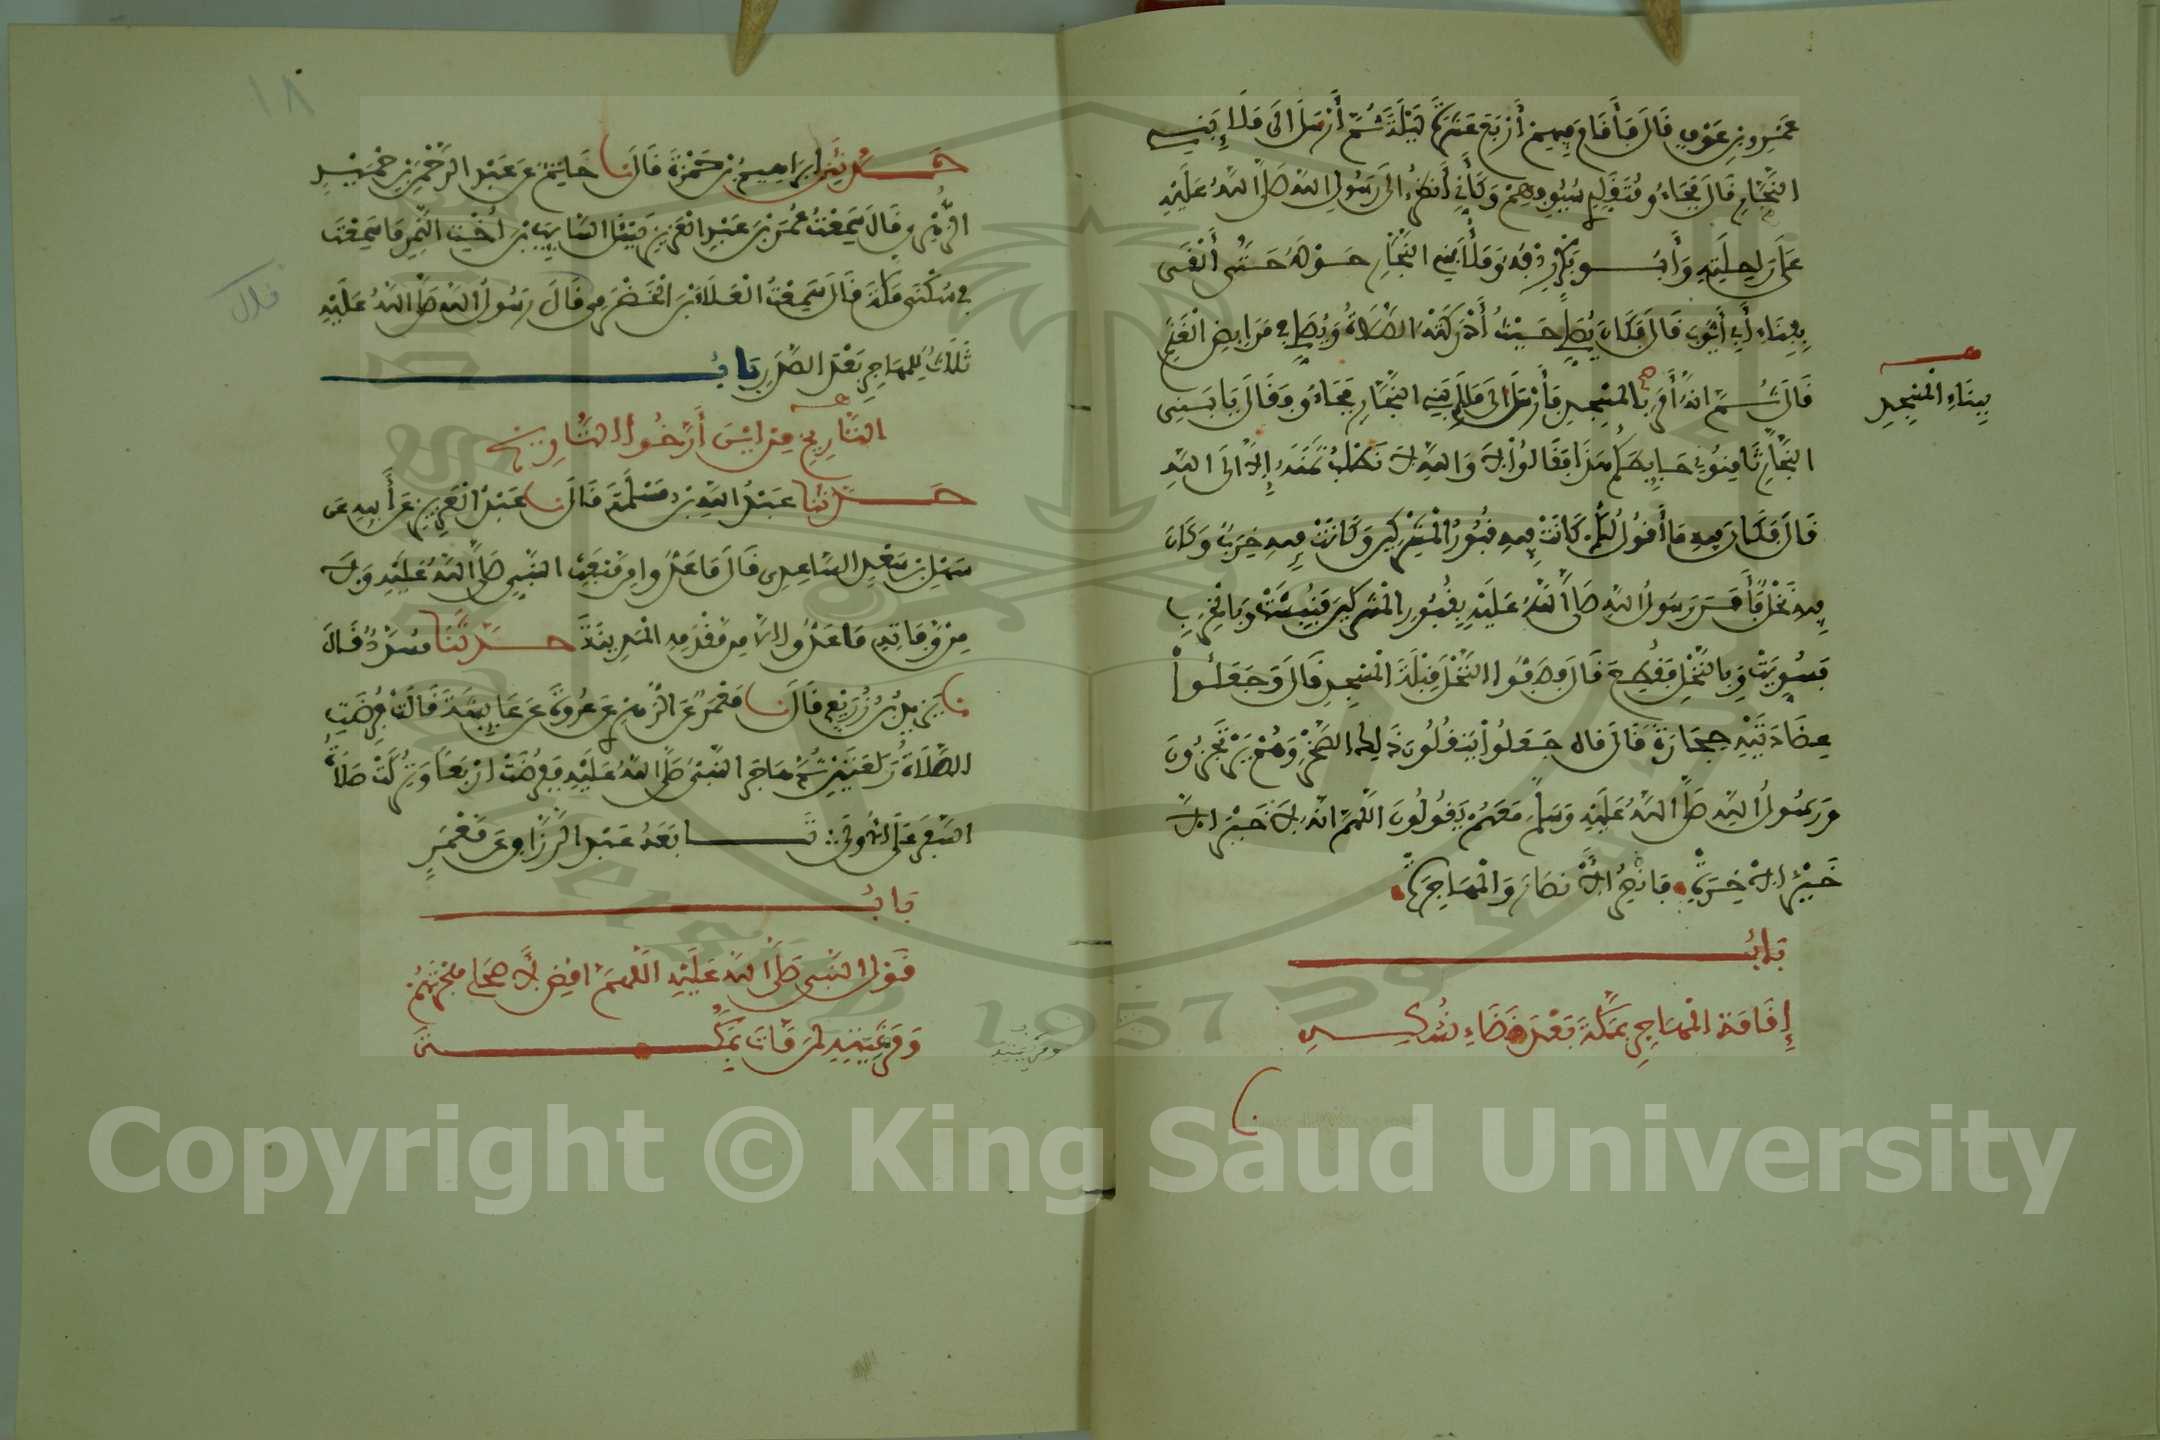 عَمْرِو بنِ عَوْفٍ قَالَ فَأَقَامَ فِيهِمْ أَرْبَعَ عَشْرَةَ لَيْلَةً ثُمَّ أَرْسَلَ الَى مَلَإِ بَنِي
النَّجَّارِ قَالَ فَجَاءُو مُتَقَلِّدِي سُيُوفِهِمْ وَكَأَنِّي أَنظُرُ الَى رَسُولِ اللهِ صَلَّى اللهُ عَلَيْهِ
عَلَى رَاحِلَتِهِ وَأَبُو بَكْرٍ رِدْفَهُ وَمَلَأُ بَنِي النَّجَّارِ حَوْلَهُ حَتَّى أَلْقَى
بِفِنَاءِ أَبِي أَيُّوبَ قَالَ فَكَانَ يُصَلِّي حَيْثُ أَدْرَكَتْهُ الصَّلَاةُ وَيُصَلِّي فِي مَرَابِضِ الْغَنَمِ
قَالَ ثُمَّ انَّهُ أَمَرَ بِالْمَسْجِدِ فَأَرْسَلَ الَى مَلَإِ بَنِي النَّجَّارِ فَجَاءُو فَقَالَ يَا بَنِي
النَّجَّارِ ثَامِنُونِي حَائِطَكُمْ هَذَا فَقَالُوا لَا وَاللهِ لَا نَطْلُبُ ثَمَنَهُ إِلَّا الَى اللهِ
قَالَ فَكَانَ فِيهِ مَا أَقُولُ لَكُمْ كَانَتْ فِيهِ قُبُورُ الْمُشْرِكِينَ وَكَانَتْ فِيهِ خِرَبٌ وَكَانَ
فِيهِ نَخْلٌ فَأَمَرَ رَسُولُ اللهِ صَلَّى اللهُ عَلَيْهِ بِقُبُورِ الْمُشْرِكِينَ فَنُبِشَتْ وَبِالْخِرَبِ
فَسُوِّيَتْ وَبِالنَّخْلِ فَقُطِعَ قَالَ فَصَفُّوا النَّخْلَ قِبْلَةَ الْمَسْجِدِ قَالَ وَجَعَلُوا
عِضَادَتَيْهِ حِجَارَةً قَالَ قال جَعَلُوا يَنقُلُونَ ذَلِكَ الصَّخْرَ وَهُمْ يَرْتَجِزُونَ
وَرَسُولُ اللهِ صَلَّى اللهُ عَلَيْهِ وَسَلَّمَ مَعَهُمْ يَقُولُونَ اللَّهُمَّ انَّهُ لَا خَيْرَ الَّا
خَيْرُ الَاخِرَة فَانصُرِ الَأنصَارَ وَالْمُهَاجِرَة
بَابُ
إِقَامَةِ الْمُهَاجِرِ بِمَكَّةَ بَعْدَ قَضَاءِ نُسُكِهِ
بِنَاءِ الْمَسْجِدِ
١٨
حَدَّثَنِي إبْرَاهِيمُ بْنُ حَمْزَةَ قَالَ نا حَاتِمٌ عَن عَبْدِ الرَّحْمَنِ بْنِ حُمَيْدٍ
الزُّهْرِيِّ قَالَ سَمِعْتُ عُمَرَ بْنَ عَبْدِ الْعَزِيزِ يَسْأَلُ السَّايِبَ بْنَ أُخْتِ النَّمِرِ مَا سَمِعْتَ
فِي سُكْنَى مَكَّةَ قَالَ سَمِعْتُ الْعَلَاءَ بْنَ الْحَضْرَمِي قَالَ رَسُولُ اللهِ صَلَّى اللهُ عَلَيْهِ
ثَلَاثٌ لِلْمُهَاجِرِ بَعْدَ الصَّدَرِ بَابُ
التَّارِيخِ مِنْ ايْنَ أَرَّخُوا التَّارِيخَ
حَدَّثَنَا عَبْدُ اللهِ بْنُ مَسْلَمَةَ قَالَ نا عَبْدُ الْعَزِيزِ عَن أَبِيهِ عَن
سَهْلِ بْنِ سَعْدٍ السَّاعِدِي قَالَ مَا عَدُّوا مِن مَبْعَثِ النَّبِي صَلَّى اللهُ عَلَيْهِ وَلَا
مِنْ وَفَاتِهِ مَا عَدُّوا الَّا مِن مَقْدَمِهِ الْمَدِينَةَ حَدَّثَنَا مُسَدَّدٌ قَالَ
نا يَزِيدُ بْنُ زُرَيْعٍ قَالَ نا مَعْمَرٌ عَنِ الزُّهْرِي عَن عُرْوَةَ عَن عَايِشَةَ قَالَتْ فُرِضَتِ
الصَّلَاةُ رَكْعَتَيْنِ ثُمَّ هَاجَرَ النَّبِيُّ صَلَّى اللهُ عَلَيْهِ فَفُرِضَتْ ارْبَعًا وَتُرِكَتْ صَلَاةُ
السَّفَرِ عَلَى الْأُولَى تَابَعَهُ عَبْدُ الرَّزَّاقِ عَن مَعْمَرٍ
بَابُ
قَوْلِ النَّبِي صَلَّى اللهُ عَلَيْهِ اللَّهُمَّ امْضِ لِأَصْحَابِي هِجْرَتَهُمْ
وَمَرْثِيَتِهِ لِمَن مَاتَ بِمَكَّةَ
Copyright © King Saud University
1957